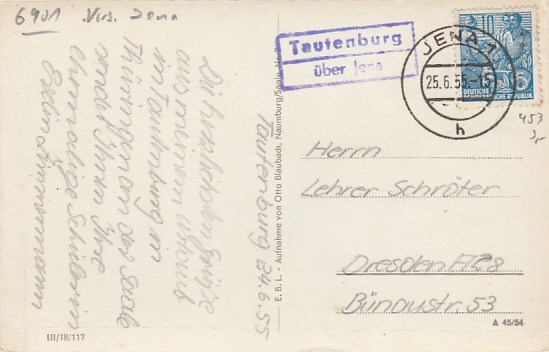 6901 Vers. Jena
Tautenburg
über Jena
JENA 1
25.6.55-16
h
10
5
DEUTSCHE
REPUBLIK
453
3,-
Tautenburg 24.6.55
Die herzlichsten Grüße
aus meinem Urlaub
in Tautenburg in
Thüringen an der Saale
sendet Ihnen Ihre
ehemalige Schülerin
Zimmermann
Herrn
Lehrer Schröter
Dresden
Bünaustr. 53
E. B. L. · Aufnahme von Otto Blaubach, Naumburg/Saale
III/18/117
A 45/54